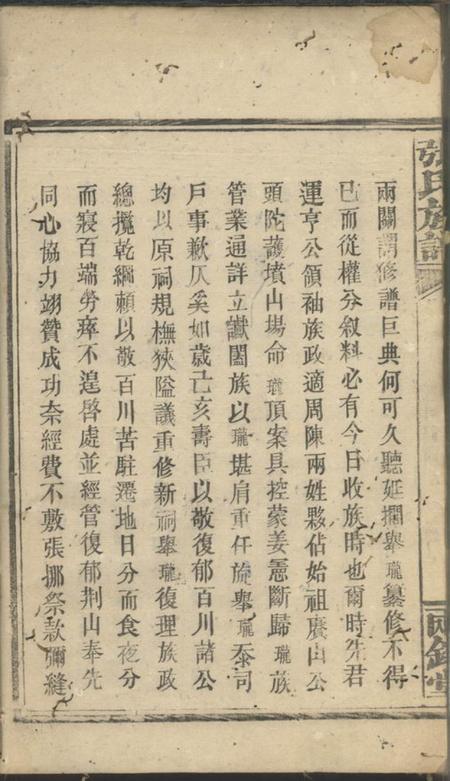 張氏族譜
兩關謂修譜巨典何可久聽延擱舉瓏纂修不得
已而從權分叙料必有今日收族時也爾時先君
運亨公領袖族政適周陳兩姓夥佔始祖賡山公
頭陀護墳山場命瓏頂案具控蒙姜憲斷歸瓏族
管業通詳立讞闔族以瓏堪肩重任旋舉瓏忝司
戶事歉仄奚如歲己亥壽臣以敬復郁百川諸公
均以原祠規橅狹隘議重修新祠舉瓏復理族政
總攬乾綱賴以敬百川苦駐遷地日分而食夜分
而寢百端勞瘁不遑啓處並經管復郁荆山奉先
同心協力翊贊成功奈經費不敷張挪祭款彌縫